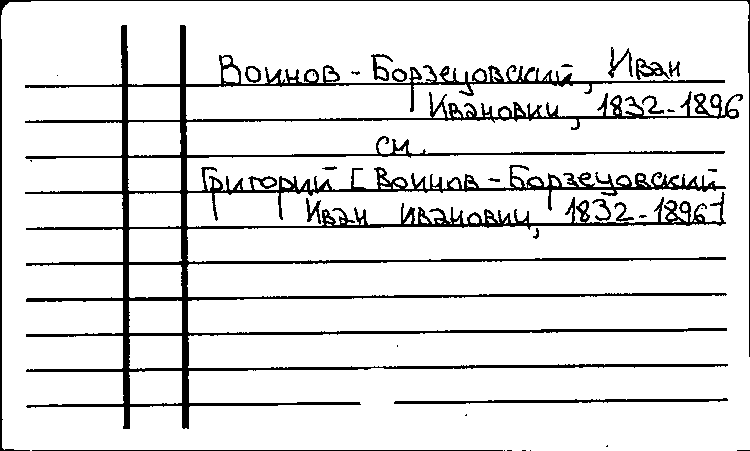 Воинов - Борзецовский, Иван
Иванович, 1832-1896
см.
Григорий [Воинов - Борзецовский
Иван Иванович, 1832-1896]